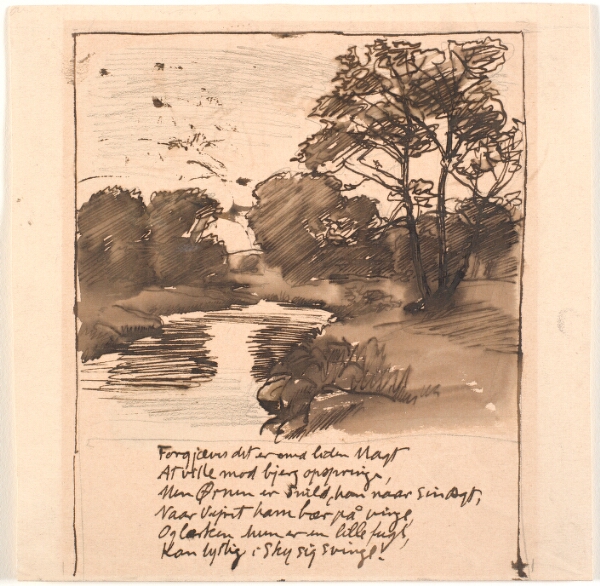 Forgjæves det er med liden Magt
At ville mod bjerg opspringe,
Men Ørnen er snild, han naar sin Agt,
Naar Vejrit ham bær på vinge,
Og Lærken hun er en lille fugl,
Kan lystig i Sky sig svinge!